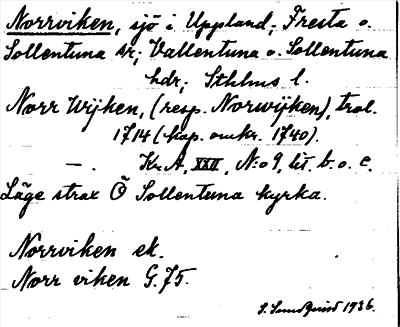 Norrviken, sjö i Uppland; Fresta o.
Sollentuna sr; Vallentuna o. Sollentuna
hdr; Sthlms l.
Norr Wijken, (resp. Norwijken), trol.
1714 (kop. omkr. 1740).
—. Kr. A, XXII, No 9, lit. b. o. c.
Läge strax Ö Sollentuna kyrka.
Norrviken ek.
Norr viken G. 75.
S. Sundquist 1936.